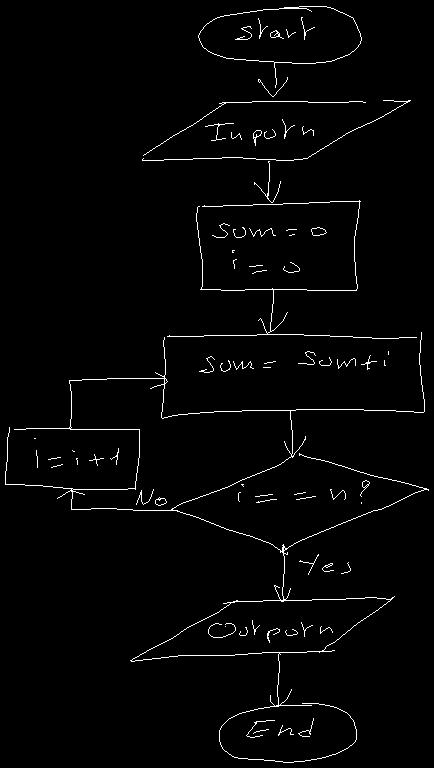 Start
Input n
sum = 0
i = 0
sum = sum + i
i = i + 1
i = = n ?
No
Yes
Output n
End